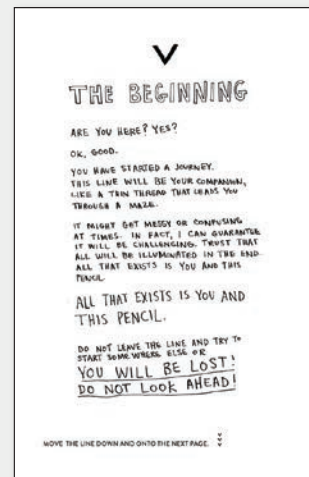 THE BEGINNING
ARE YOU HERE? YES?
OK, GOOD.
YOU HAVE STARTED A JOURNEY.
THIS LINE WILL BE YOUR COMPANION,
LIKE A THIN THREAD THAT LEADS YOU
THROUGH A MAZE.
IT MIGHT GET MESSY OR CONFUSING
AT TIMES. IN FACT, I CAN GUARANTEE
IT WILL BE CHALLENGING. TRUST THAT
ALL WILL BE ILLUMINATED IN THE END.
ALL THAT EXISTS IS YOU AND THIS
PENCIL.
ALL THAT EXISTS IS YOU AND
THIS PENCIL.
DO NOT LEAVE THE LINE AND TRY TO
START SOMEWHERE ELSE OR
YOU WILL BE LOST!
DO NOT LOOK AHEAD!
MOVE THE LINE DOWN AND ONTO THE NEXT PAGE.